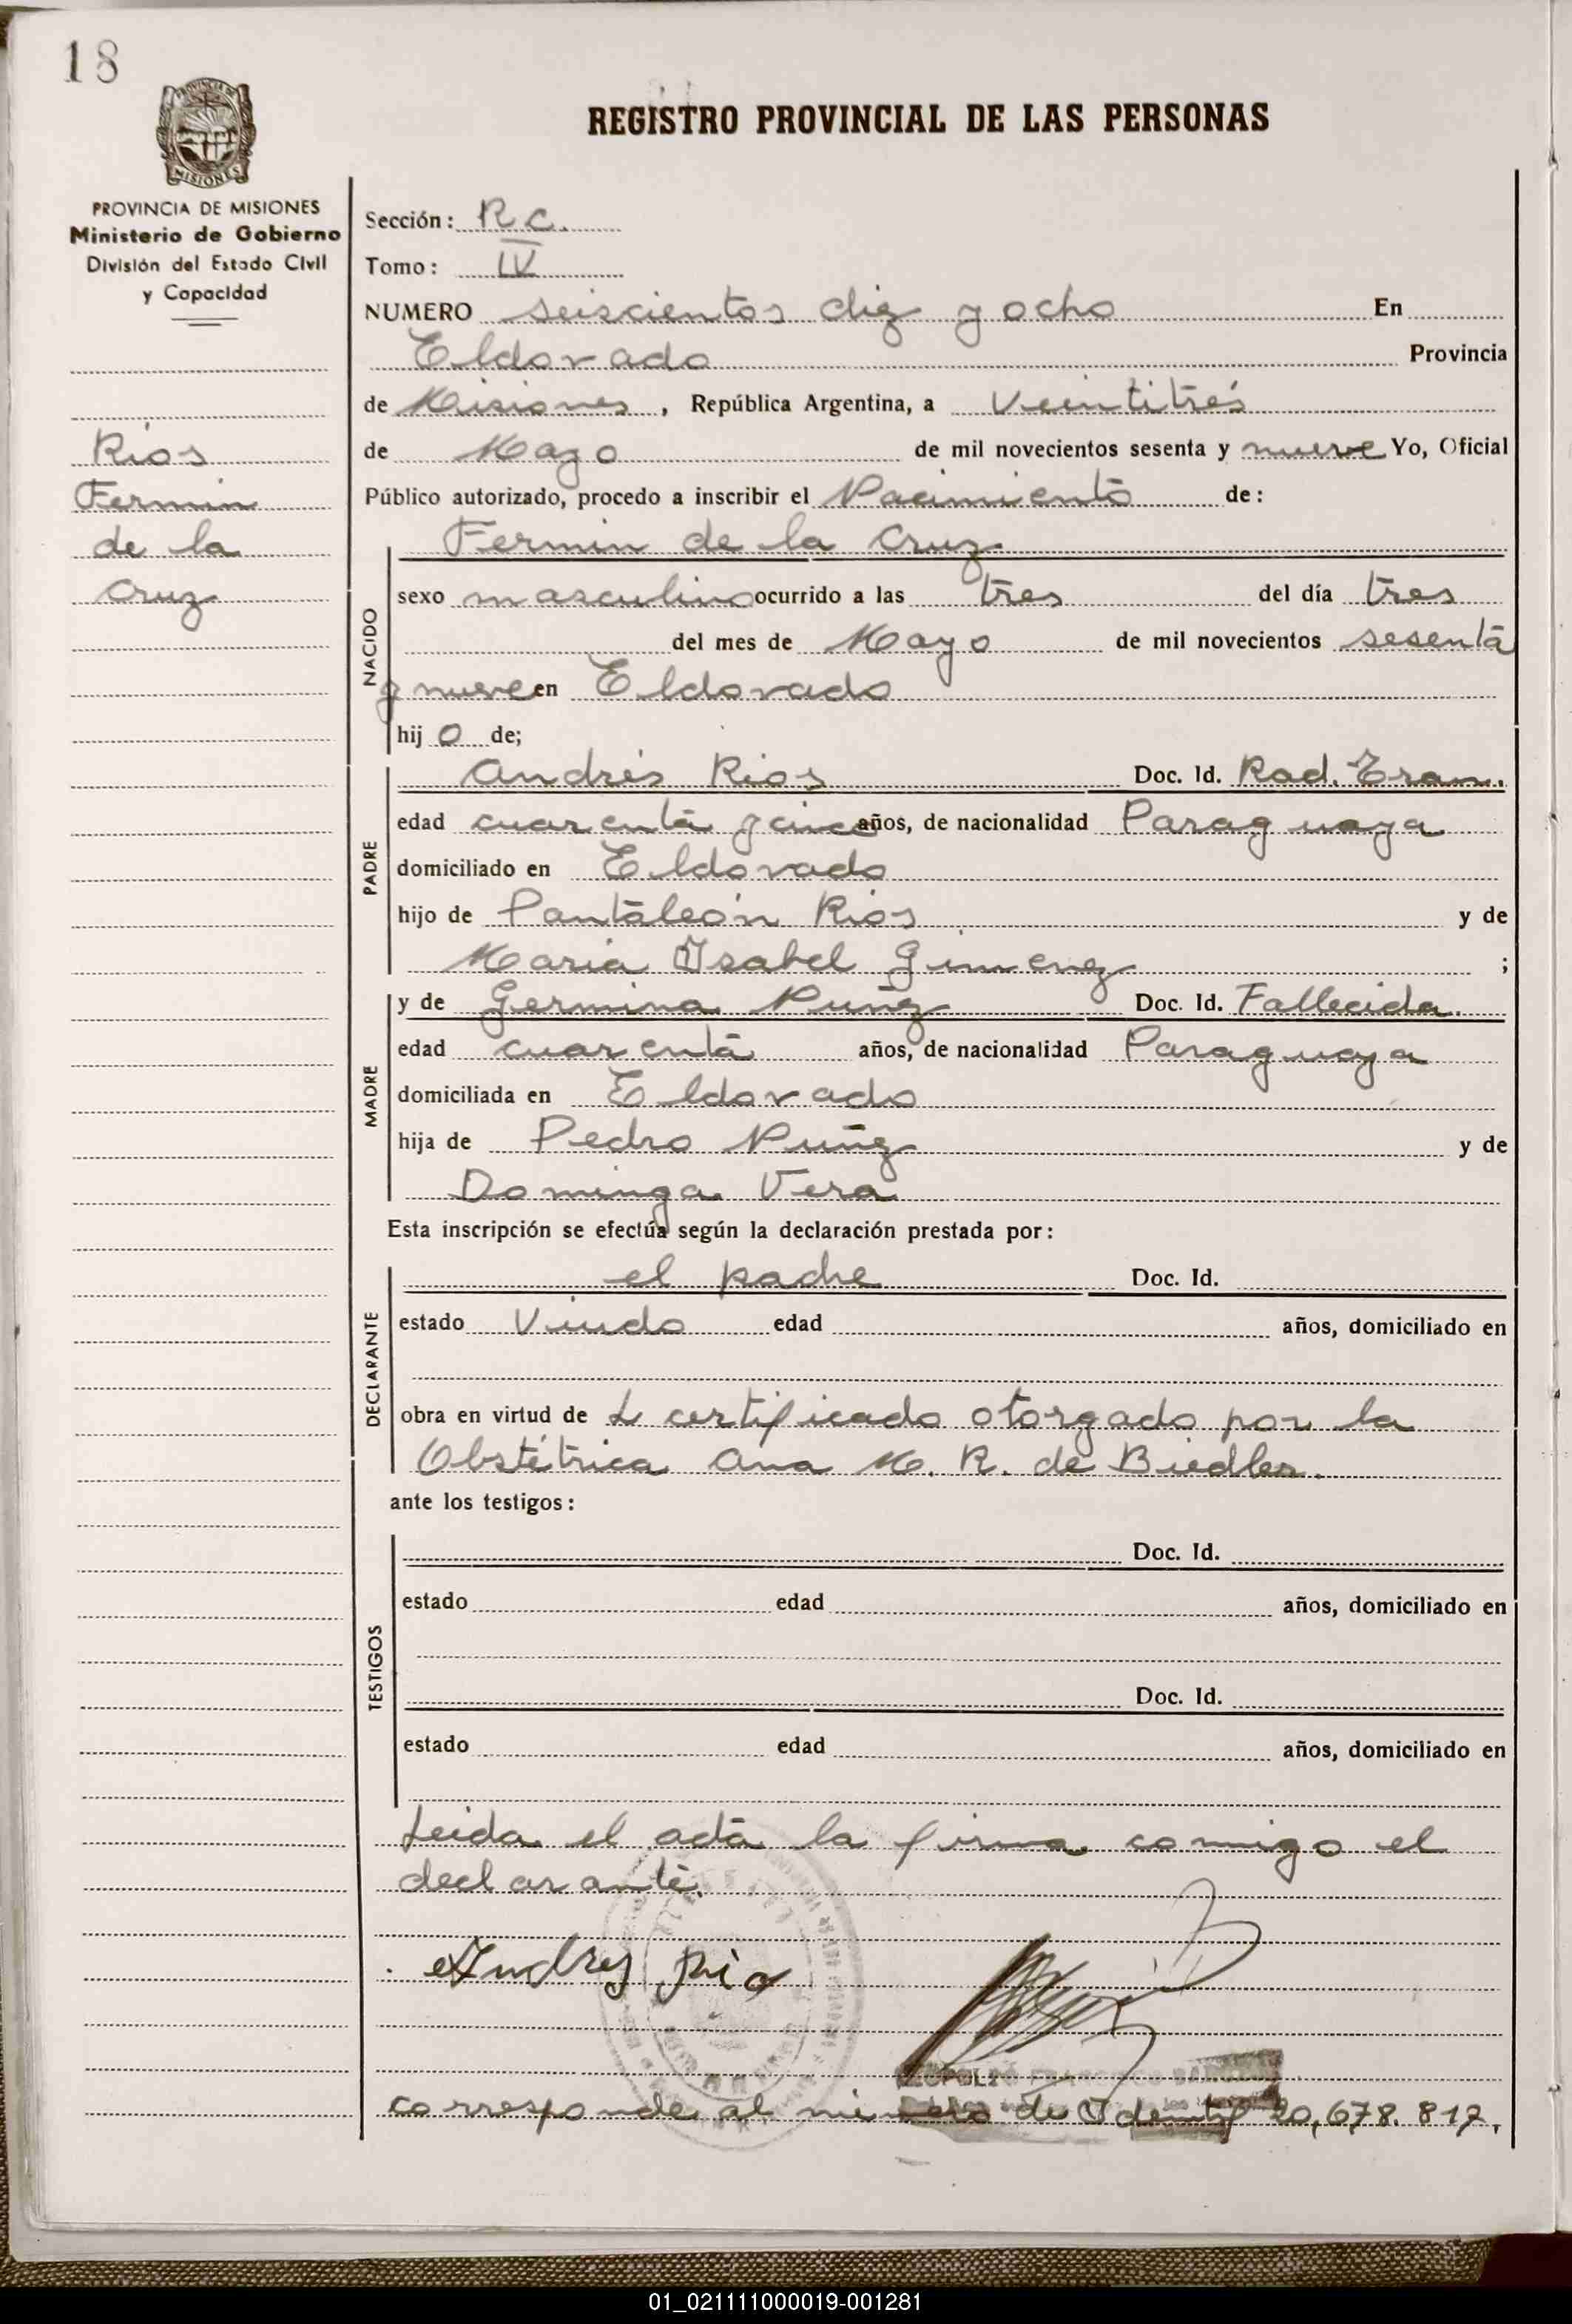 18
PROVINCIA DE
MISIONES
PROVINCIA DE MISIONES
Ministerio de Gobierno
División del Estado Civil
y Capacidad
Rios
Fermin
de la
Cruz
REGISTRO PROVINCIAL DE LAS PERSONAS
Sección: R C.
Tomo: IV
NUMERO seiscientos diez y ocho En
Eldorado Provincia
de Misiones, República Argentina, a Veintitrés
de Mayo de mil novecientos sesenta y nueve Yo, Oficial
Público autorizado, procedo a inscribir el Nacimiento de:
Fermin de la Cruz
NACIDO
sexo masculino ocurrido a las tres del día tres
del mes de Mayo de mil novecientos sesenta
y nueve en Eldorado
hij o de;
PADRE
Andrés Rios Doc. Id. Rad. Tram.
edad cuarenta y cinco años, de nacionalidad Paraguaya
domiciliado en Eldorado
hijo de Pantaleón Rios y de
Maria Isabel Gimenez ;
MADRE
y de Germina Nuñez Doc. Id. Fallecida.
edad cuarenta años, de nacionalidad Paraguaya
domiciliada en Eldorado
hija de Pedro Nuñez y de
Dominga Vera
Esta inscripción se efectúa según la declaración prestada por:
DECLARANTE
el padre Doc. Id.
estado Viudo edad años, domiciliado en
obra en virtud de L certificado otorgado por la
Obstétrica Ana M. R. de Biedler.
ante los testigos:
TESTIGOS
Doc. Id.
estado edad años, domiciliado en
Doc. Id.
estado edad años, domiciliado en
Leida el acta la firma comigo el
declarante.
Andres Rio
FRANCISCO
corresponde al número de Identif 20,678.817.
01_021111000019-001281